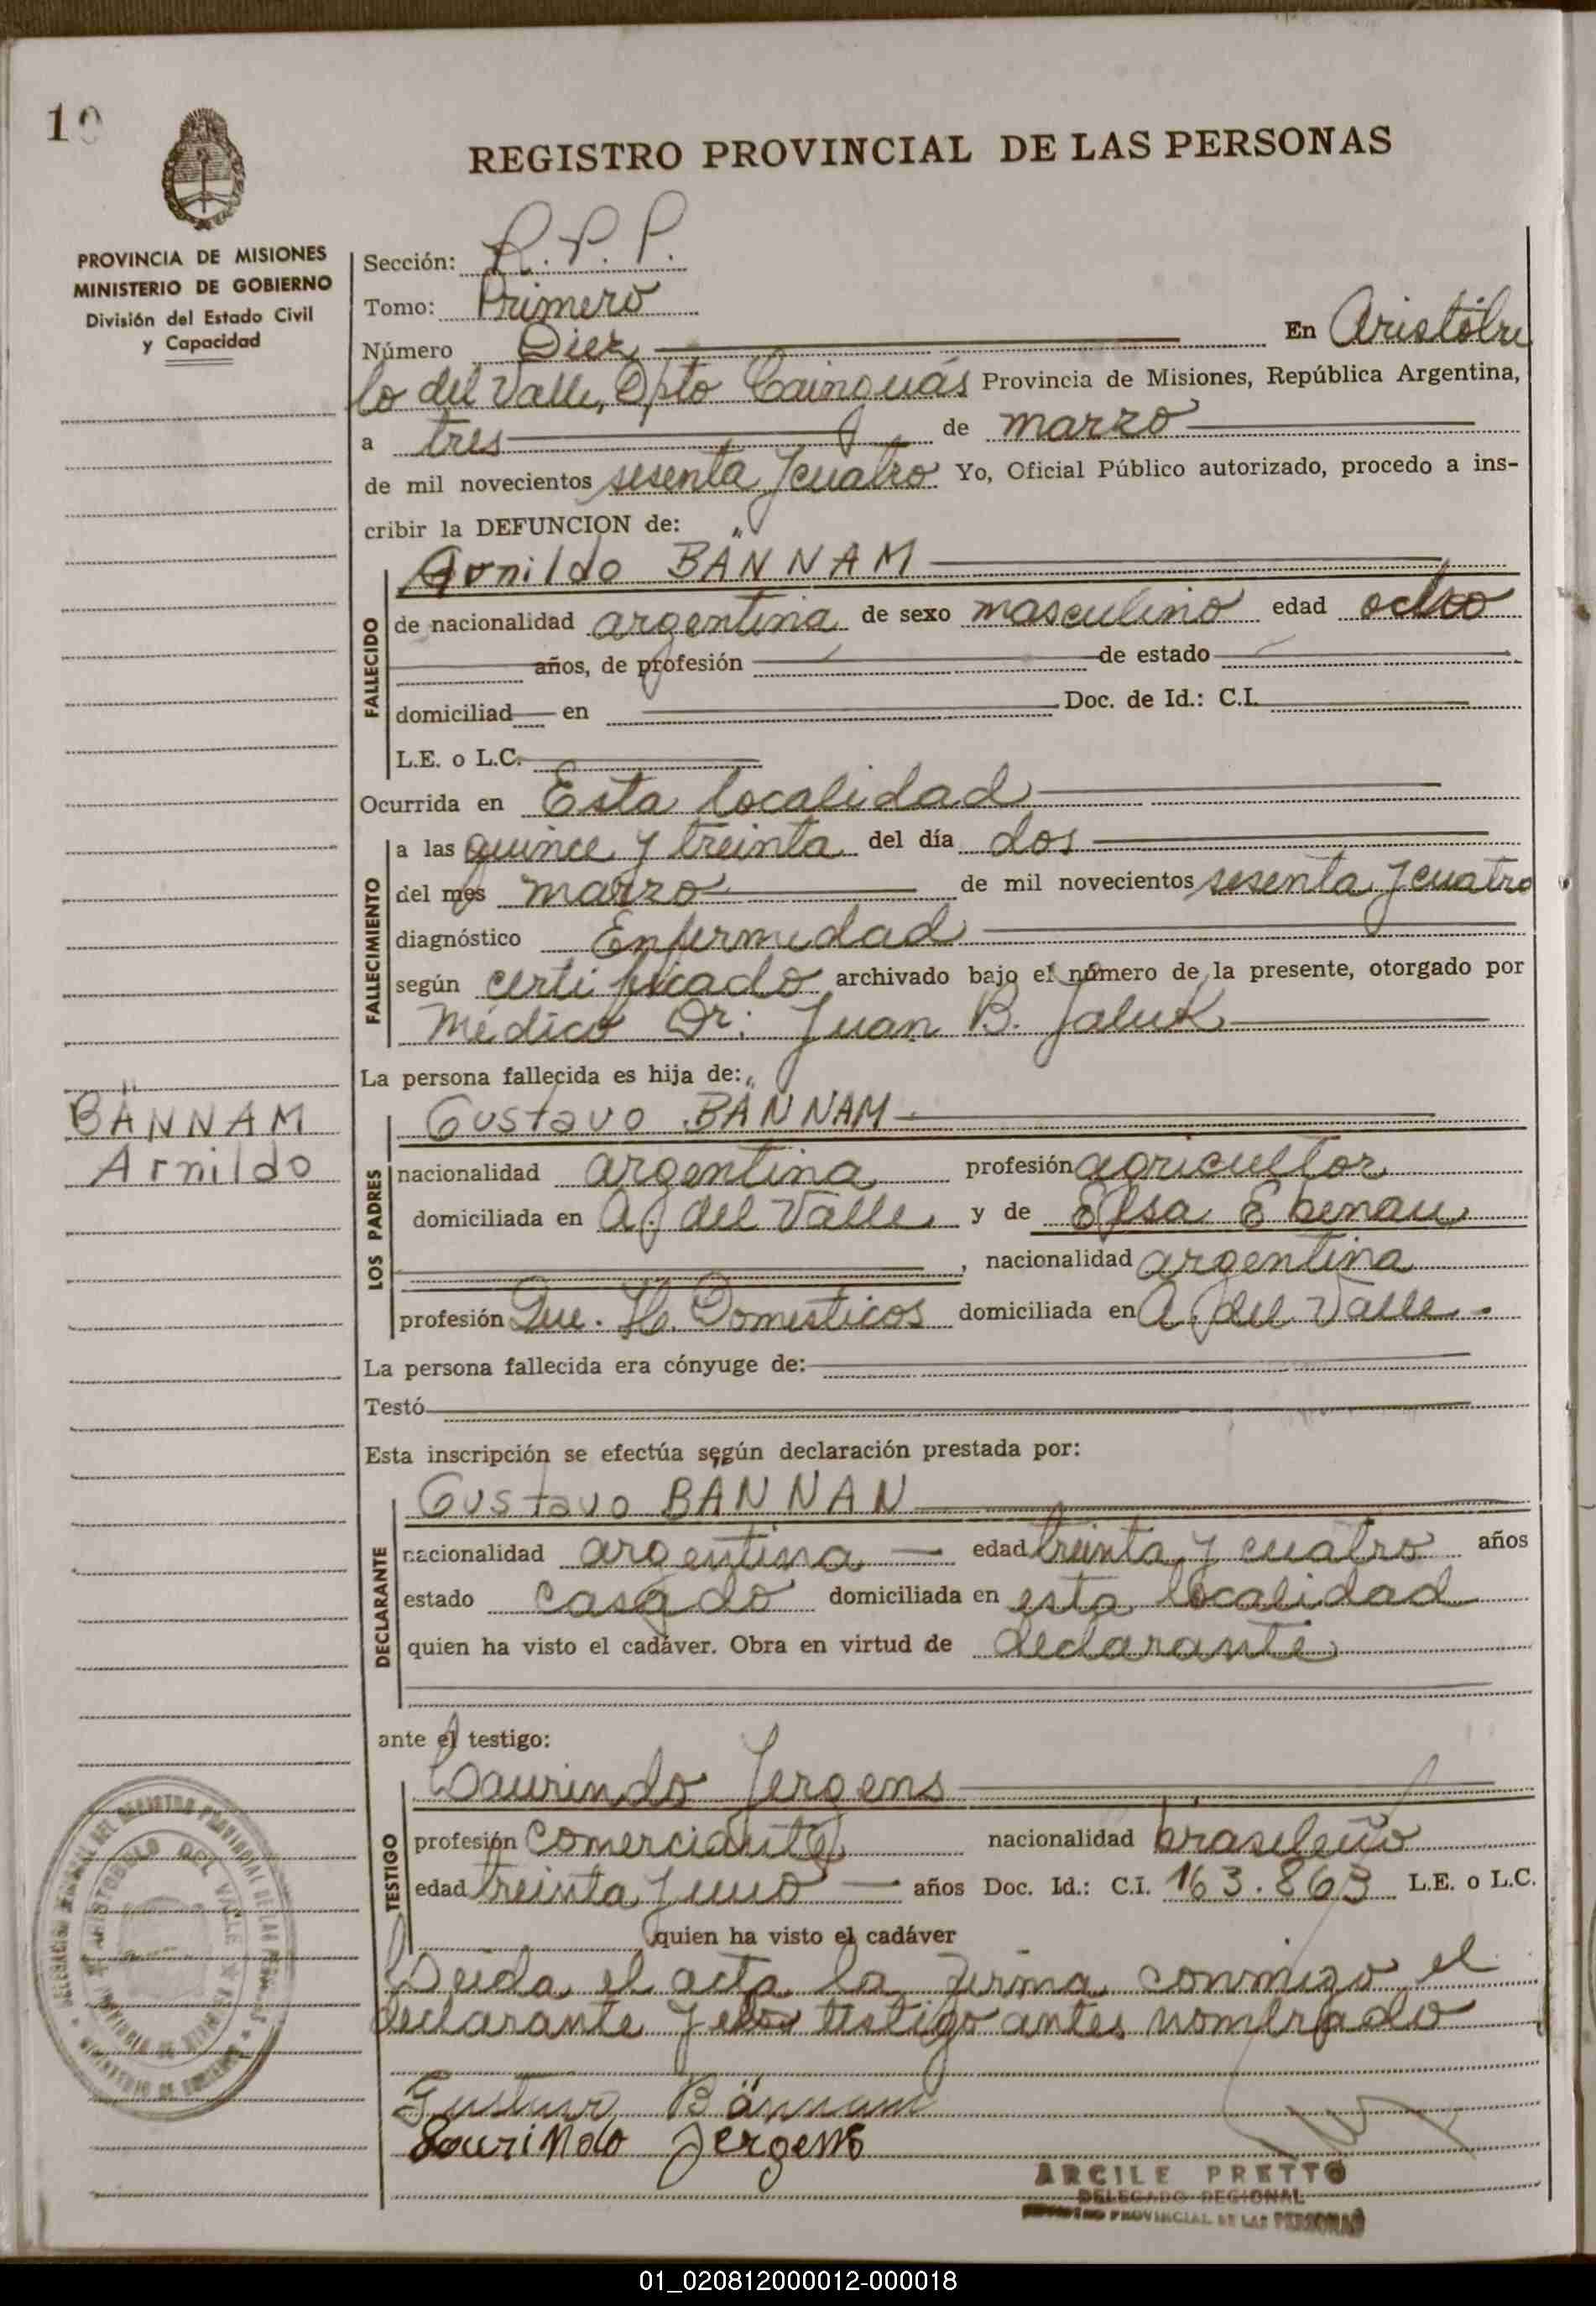 10
REGISTRO PROVINCIAL DE LAS PERSONAS
PROVINCIA DE MISIONES
MINISTERIO DE GOBIERNO
División del Estado Civil
y Capacidad
Sección: R.P.P.
Tomo: Primero
Número Diez En Aristóbu
lo del Valle, Dpto Cainguás Provincia de Misiones, República Argentina,
a tres de marzo
de mil novecientos sesenta y cuatro Yo, Oficial Público autorizado, procedo a ins-
cribir la DEFUNCION de:
Arnildo BÄNNAM
FALLECIDO
de nacionalidad argentina de sexo masculino edad ocho
años, de profesión de estado
domiciliad en Doc. de Id.: C.I.
L.E. o L.C.
Ocurrida en Esta localidad
FALLECIMIENTO
a las quince y treinta del día dos
del mes marzo de mil novecientos sesenta y cuatro
diagnóstico Enfermedad
según certificado archivado bajo el número de la presente, otorgado por
Médico Dr: Juan B. Jaluk
La persona fallecida es hija de:
BÄNNAM
Arnildo
LOS PADRES
Gustavo BÄNNAM
nacionalidad argentina profesión agricultor
domiciliada en A. del Valle y de Elsa Ebenau
, nacionalidad argentina
profesión Que. H. Domesticos domiciliada en A. del Valle.
La persona fallecida era cónyuge de:
Testó
Esta inscripción se efectúa según declaración prestada por:
DECLARANTE
Gustavo BANNAN
nacionalidad argentina edad treinta y cuatro años
estado casado domiciliada en esta localidad
quien ha visto el cadáver. Obra en virtud de declarante
ante el testigo:
TESTIGO
Laurindo Jergens
profesión comerciante nacionalidad brasileño
edad treinta y uno años Doc. Id.: C.I. 163.863 L.E. o L.C.
quien ha visto el cadáver
Leida el acta la firma conmigo el
declarante y el testigo antes nombrado
Gustavo Bännam
Laurindo Jergens
ARCILE PRETTO
DELEGADO REGIONAL
REGISTRO PROVINCIAL DE LAS PERSONAS
01_020812000012-000018